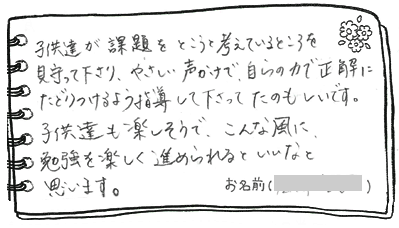 子供達が課題をとこうと考えているところを
見守って下さり、やさしい声かけで、自らの力で正解に
たどりつけるよう指導して下さってたのもしいです。
子供達も楽しそうで、こんな風に、
勉強を楽しく進められるといいなと
思います。
お名前( )